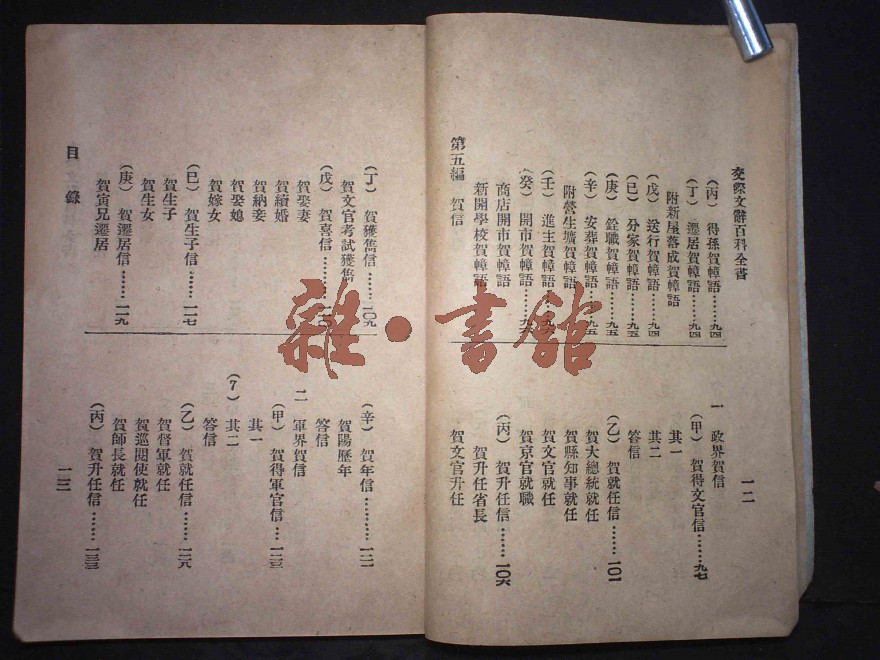 交際文辭百科全書
(丙) 得孫賀幛語……九四
(丁) 遷居賀幛語……九四
附新屋落成賀幛語
(戊) 送行賀幛語……九四
(巳) 分家賀幛語……九五
(庚) 銓職賀幛語……九五
(辛) 安葬賀幛語……九五
附營生壙賀幛語
(壬) 進主賀幛語……九
(癸) 開市賀幛語……九六
商店開市賀幛語
新開學校賀幛語
第五編 賀信
一 政界賀信
(甲) 賀得文官信……九七
其一
其二
答信
(乙) 賀就任信……一〇一
賀大總統就任
賀縣知事就任
賀文官就任
賀京官就職
(丙) 賀升任信……一〇六
賀升任省長
賀文官升任
一二
(丁) 賀獲雋信……一〇九
賀文官考試獲雋
(戊) 賀喜信……一一
賀娶妻
賀續婚
賀納妾
賀娶媳
賀嫁女
(巳) 賀生子信……一一七
賀生子
賀生女
(庚) 賀遷居信……一一九
賀寅兄遷居
目錄
(辛) 賀年信……一二一
賀陽歷年
答信
二 軍界賀信
(甲) 賀得軍官信……一二三
其一
(7) 其二
答信
(乙) 賀就任信……一二八
賀督軍就任
賀巡閱使就任
賀師長就任
(丙) 賀升任信……一三三
一三
雜·書館